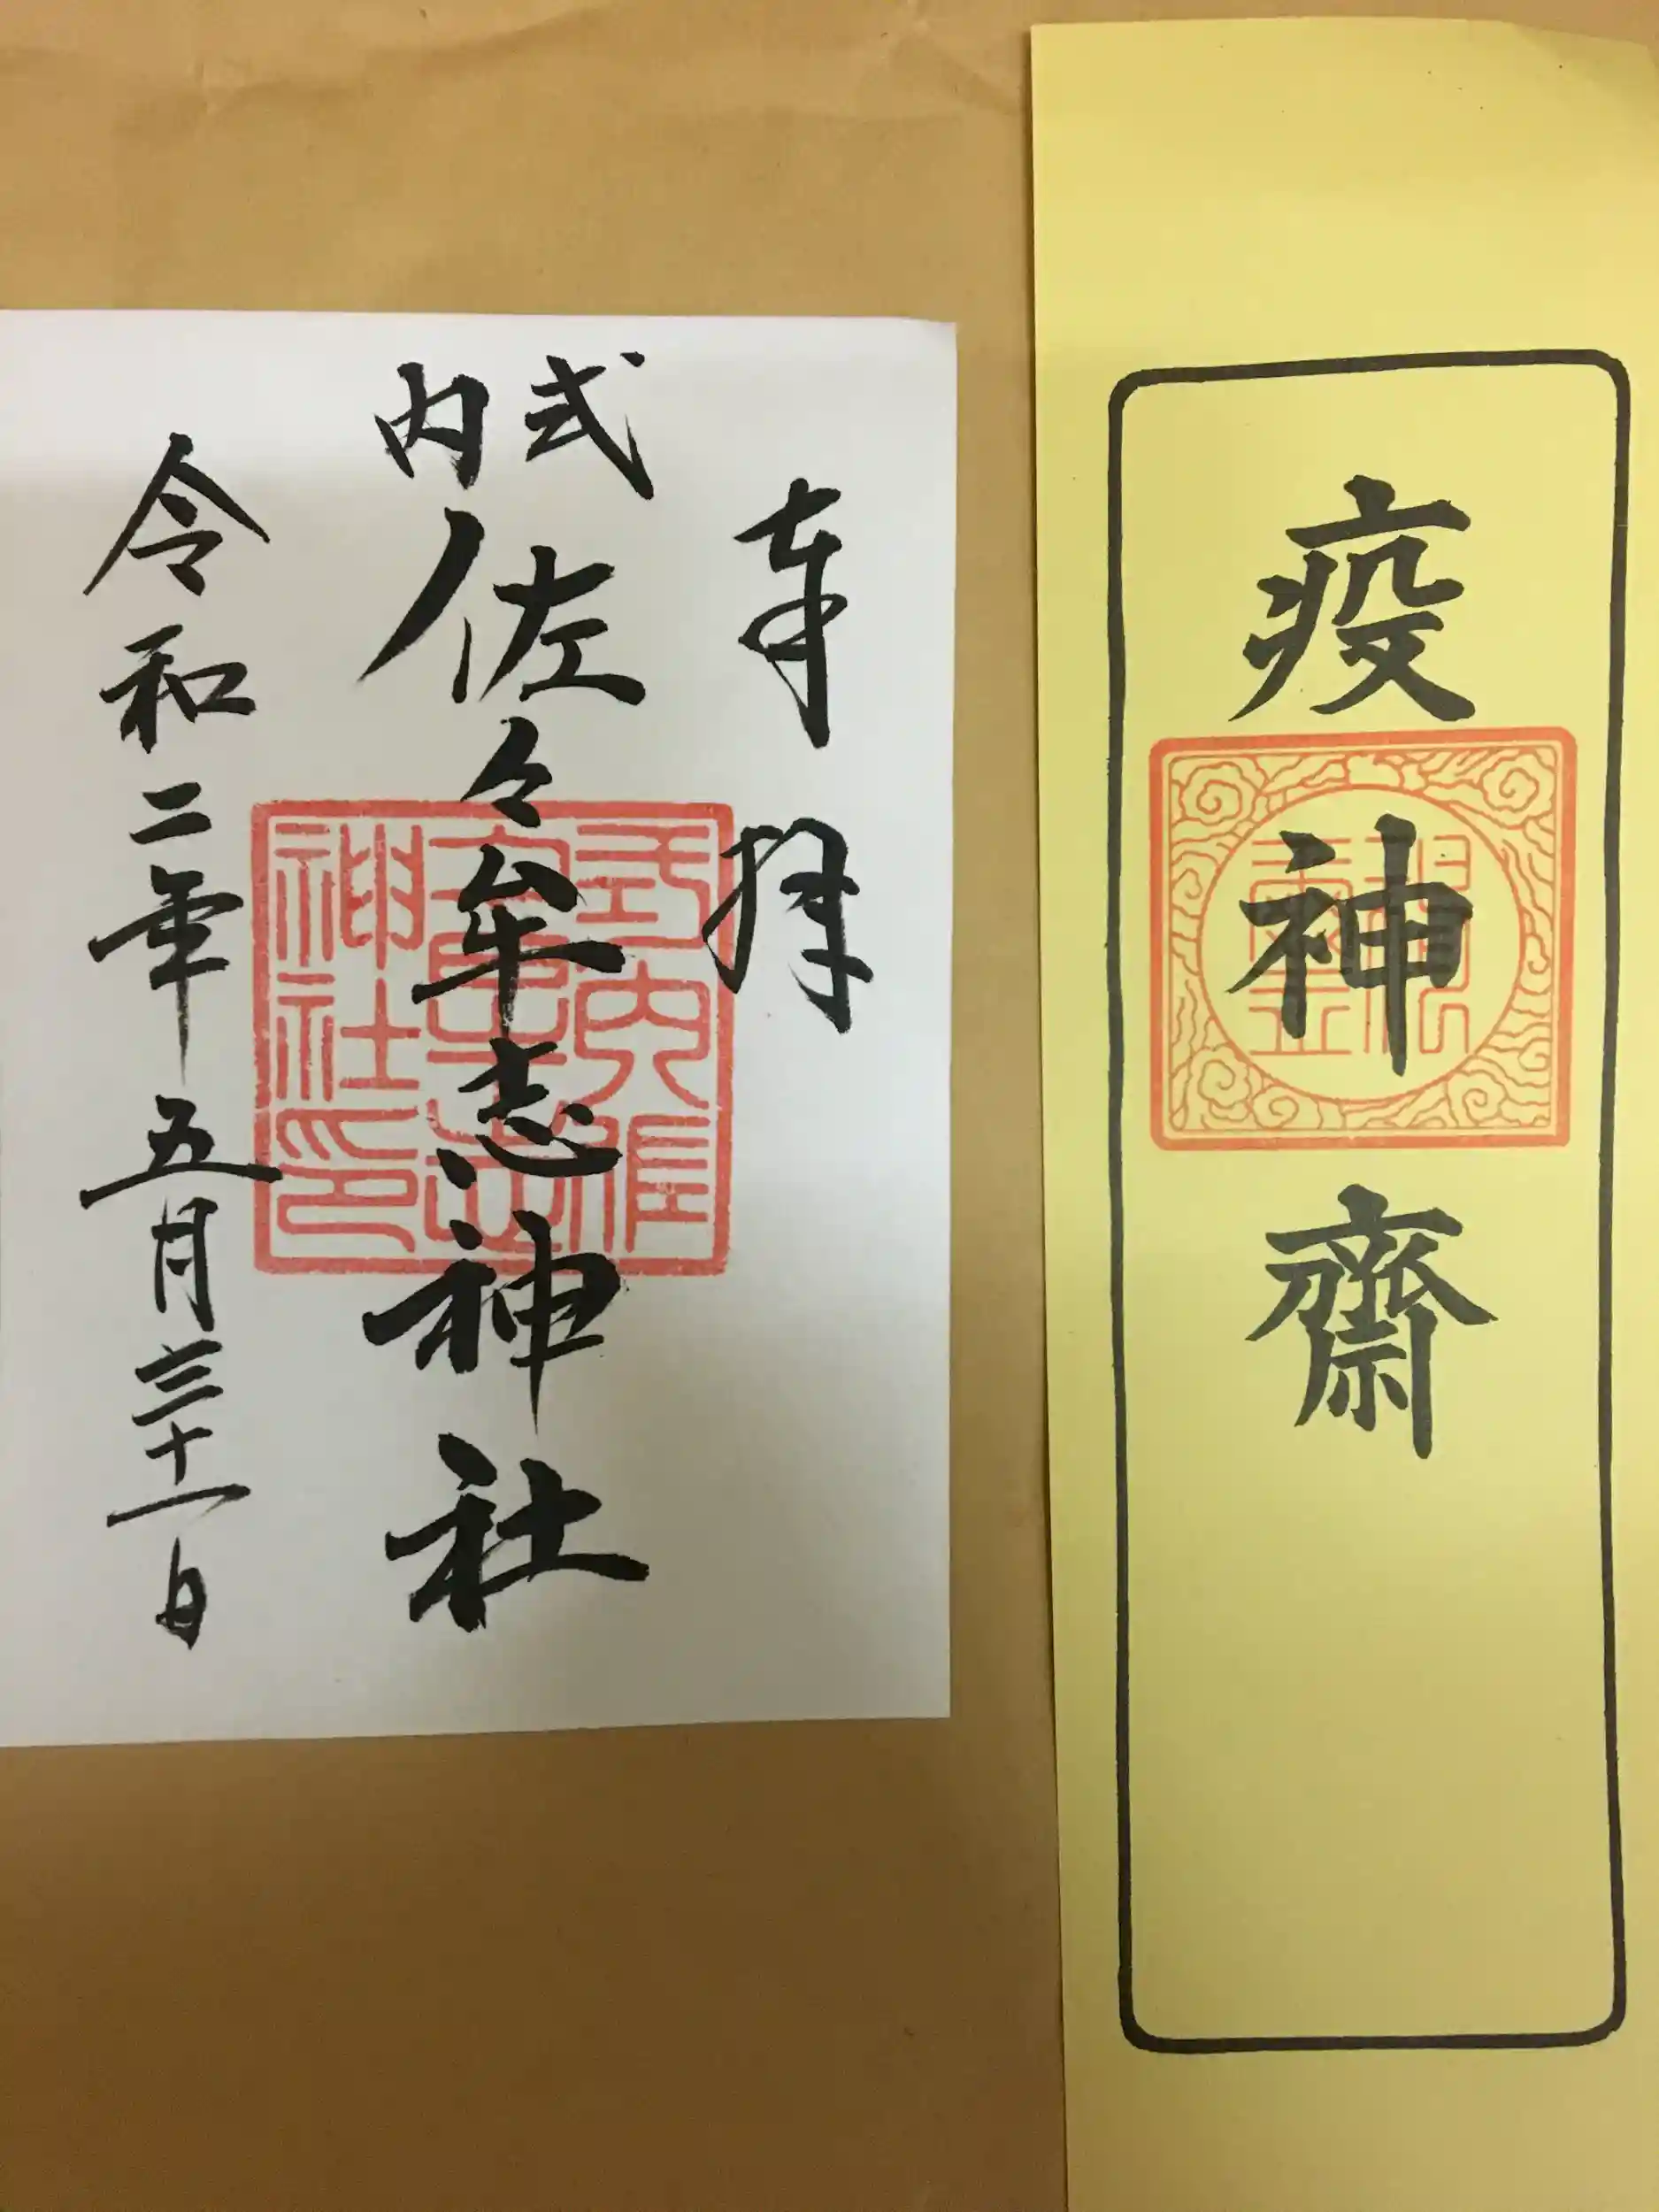 疫神齋
奉拝
式内
佐々牟志神社
令和二年五月三十一日
式内佐
神社印